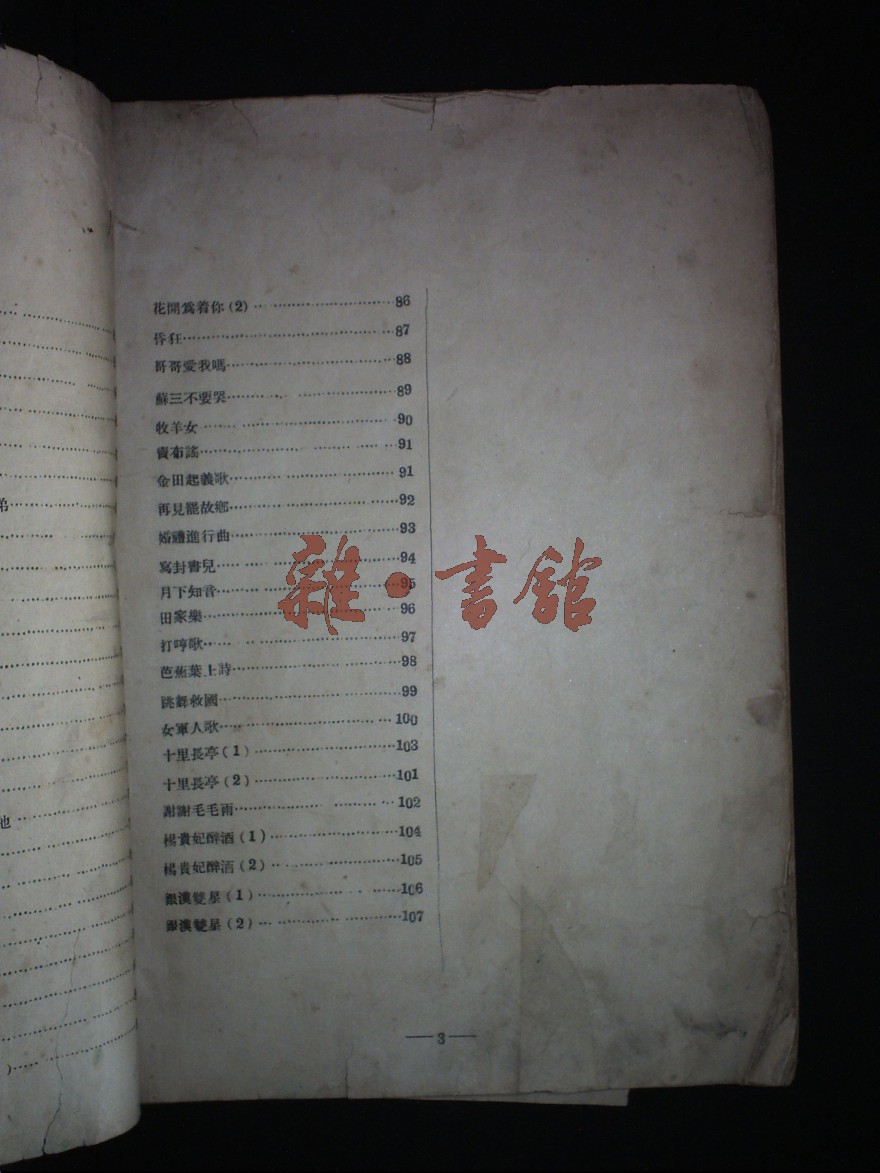 花開爲着你(2)……………………86
昏狂……………………87
哥哥愛我嗎……………………88
蘇三不要哭……………………89
牧羊女……………………90
賣布謠……………………91
金田起義歌……………………91
再見罷故鄉……………………92
婚禮進行曲……………………93
寫封書兒……………………94
月下知音……………………95
田家樂……………………96
打哼歌……………………97
芭蕉葉上詩……………………98
跳舞救國……………………99
女軍人歌……………………100
十里長亭(1)……………………103
十里長亭(2)……………………101
謝謝毛毛雨……………………102
楊貴妃醉酒(1)……………………104
楊貴妃醉酒(2)……………………105
銀漢雙星(1)……………………106
銀漢雙星(2)……………………107
—3—
弟
他
)
雜·書館